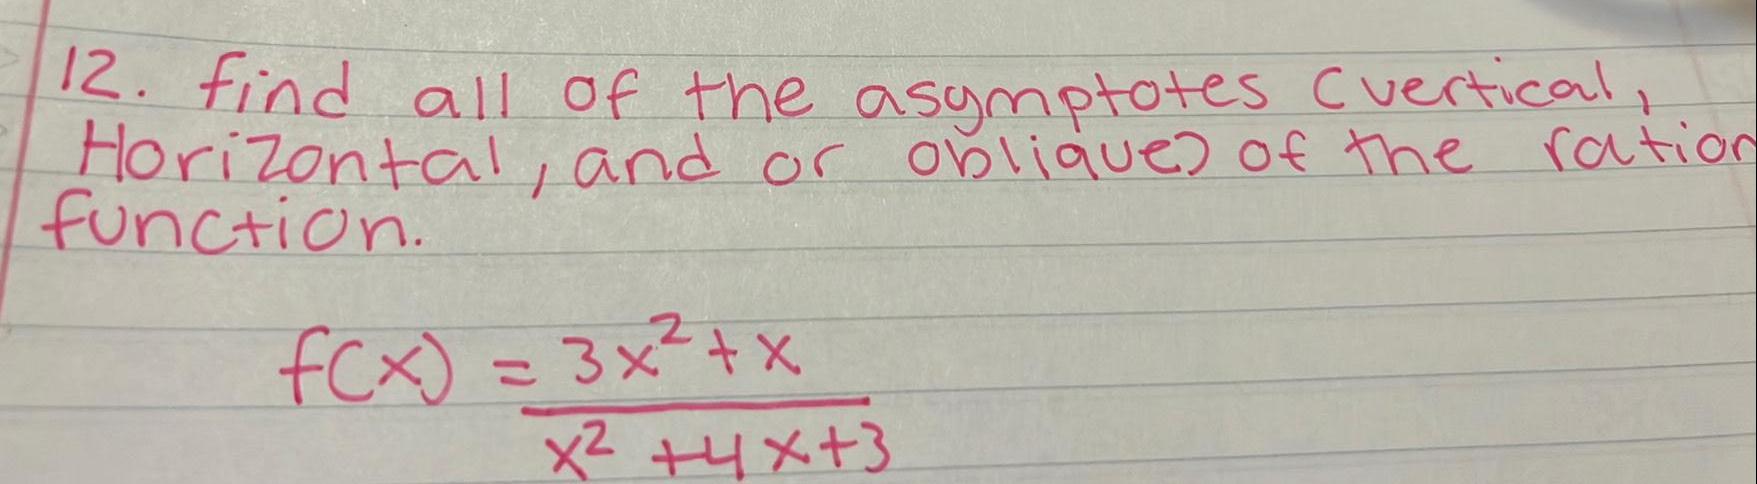 12. find all of the asymptotes (vertical,
Horizontal, and or oblique) of the ration
function.
f(x) = 3x² + x
x² + 4x + 3